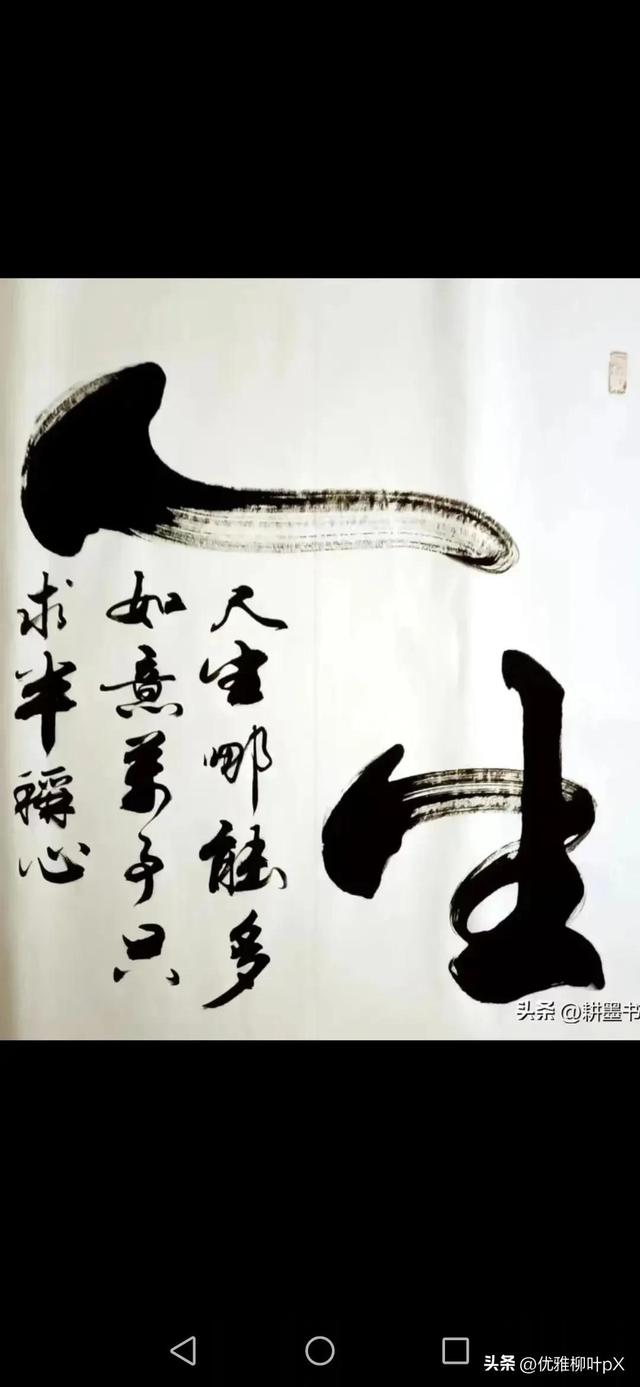 一生
尺生哪能多
如意萬事只
求半稱心
头条 @耕墨书
头条 @优雅柳叶pX